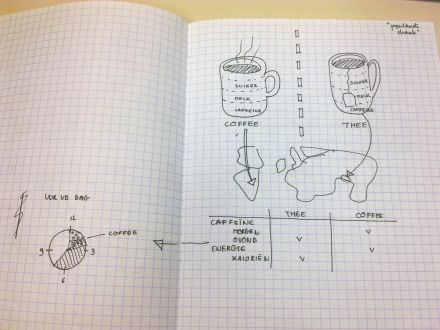 UUR VD DAG
12
9
3
6
COFFEE
SUIKER
MELK
CAFFEINE
COFFEE
SUIKER
MELK
CAFFEINE
THEE
THEE COFFEE
CAFFEÏNE
MORGEN V
OVOND V
ENERGIE V
KALORIËN V